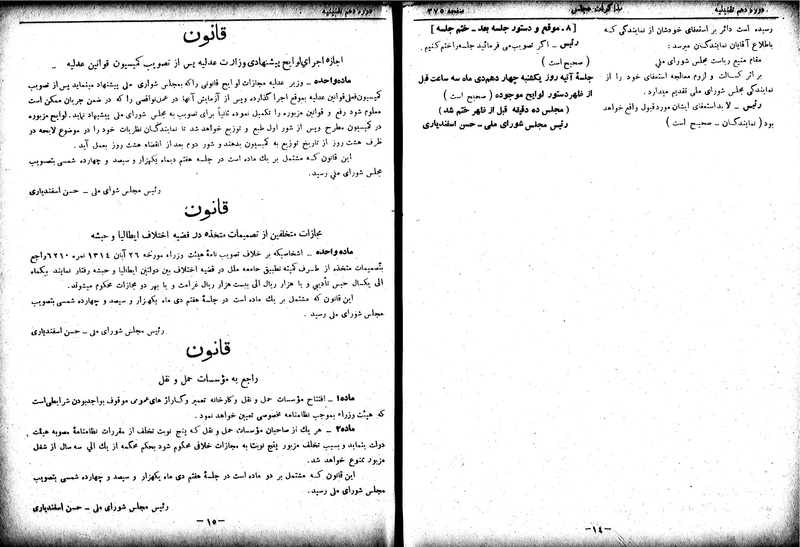 دوره دهم تقنینیه
مذاکرات مجلس
صفحه ۳۷۵
رسیده است دائر بر استعفای خودشان از نمایندگی که
باطلاع آقایان نمایندگان میرسد :
مقام منیع ریاست مجلس شورای ملی
بر اثر کسالت و لزوم معالجه استعفای خود را از
نمایندگی مجلس شورای ملی تقدیم میدارد .
رئیس ـ لابد استعفای ایشان مورد قبول واقع خواهد
بود ( نمایندگان ـ صحیح است )
[ ۸ ـ موقع و دستور جلسه بعد ـ ختم جلسه ]
رئیس ـ اگر تصویب می فرمائید جلسه را ختم کنیم .
( صحیح است )
جلسهٔ آتیه روز یکشنبه چهار دهم دی ماه سه ساعت قبل
از ظهر دستور لوایح موجوده ( صحیح است )
( مجلس ده دقیقه قبل از ظهر ختم شد )
رئیس مجلس شورای ملی ـ حسن اسفندیاری
ـ ۱۴ ـ
دوره دهم تقنینیه
قانون
اجازه اجرای لوایح پیشنهادی وزارت عدلیه پس از تصویب کمیسیون قوانین عدلیه
ماده واحده ـ وزیر عدلیه مجازات لوایح قانونی را که بمجلس شورای ملی پیشنهاد مینماید پس از تصویب
کمیسیون فعلی قوانین عدلیه بموقع اجرا گذارده و پس از آزمایش آنها در عمل نواقصی را که در ضمن جریان ممکن است
معلوم شود رفع و قوانین مزبوره را تکمیل نموده ثانیاً برای تصویب به مجلس شورای ملی پیشنهاد نماید . لوایح مزبوره
در کمیسیون مطرح و پس از شور اول طبع و توزیع خواهد شد تا نمایندگان نظریات خود را در موضوع لایحه در
ظرف هشت روز از تاریخ توزیع به کمیسیون بدهند و شور دوم بعد از انقضاء هشت روز بعمل آید .
این قانون که مشتمل بر یك ماده است در جلسه هفتم دیماه یکهزار و سیصد و چهارده شمسی بتصویب
مجلس شورای ملی رسید .
رئیس مجلس شورای ملی ـ حسن اسفندیاری
قانون
مجازات متخلفین از تصمیمات متخذه در قضیه اختلاف ایطالیا و حبشه
ماده واحده ـ اشخاصیکه بر خلاف تصویب نامهٔ هیئت وزراء مورخه ۲۶ آبان ۱۳۱۴ نمره ۶۲۱۰ راجع
بتصمیمات متخذه از طرف کمیته تطبیق جامعه ملل در قضیه اختلاف بین دولتین ایطالیا و حبشه رفتار نمایند بیکماه
الی یکسال حبس تأدیبی و یا هزار ریال الی بیست هزار ریال غرامت و یا بهر دو مجازات محکوم میشوند.
این قانون که مشتمل بر یك ماده است در جلسهٔ هفتم دی ماه یکهزار و سیصد و چهارده شمسی بتصویب
مجلس شورای ملی رسید .
رئیس مجلس شورای ملی ـ حسن اسفندیاری
قانون
راجع به مؤسسات حمل و نقل
ماده۱ ـ افتتاح مؤسسات حمل و نقل و کارخانه تعمیر و گاراژ های عمومی موقوف بواجد بودن شرایطی است
که هیئت وزراء بموجب نظامنامه مخصوصی تعیین خواهد نمود .
ماده۲ ـ هر یك از صاحبان مؤسسات حمل و نقل که پنج نوبت تخلف از مقررات نظامنامهٔ مصوبه هیئت
دولت بنماید و بسبب تخلف مزبور پنج نوبت به مجازات خلافی محکوم شود بحکم محکمه از یك الی سه سال از شغل
مزبور ممنوع خواهد شد.
این قانون که مشتمل بر دو ماده است در جلسهٔ هفتم دی ماه یکهزار و سیصد و چهارده شمسی بتصویب
مجلس شورای ملی رسید.
رئیس مجلس شورای ملی ـ حسن اسفندیاری
ـ ۱۵ ـ